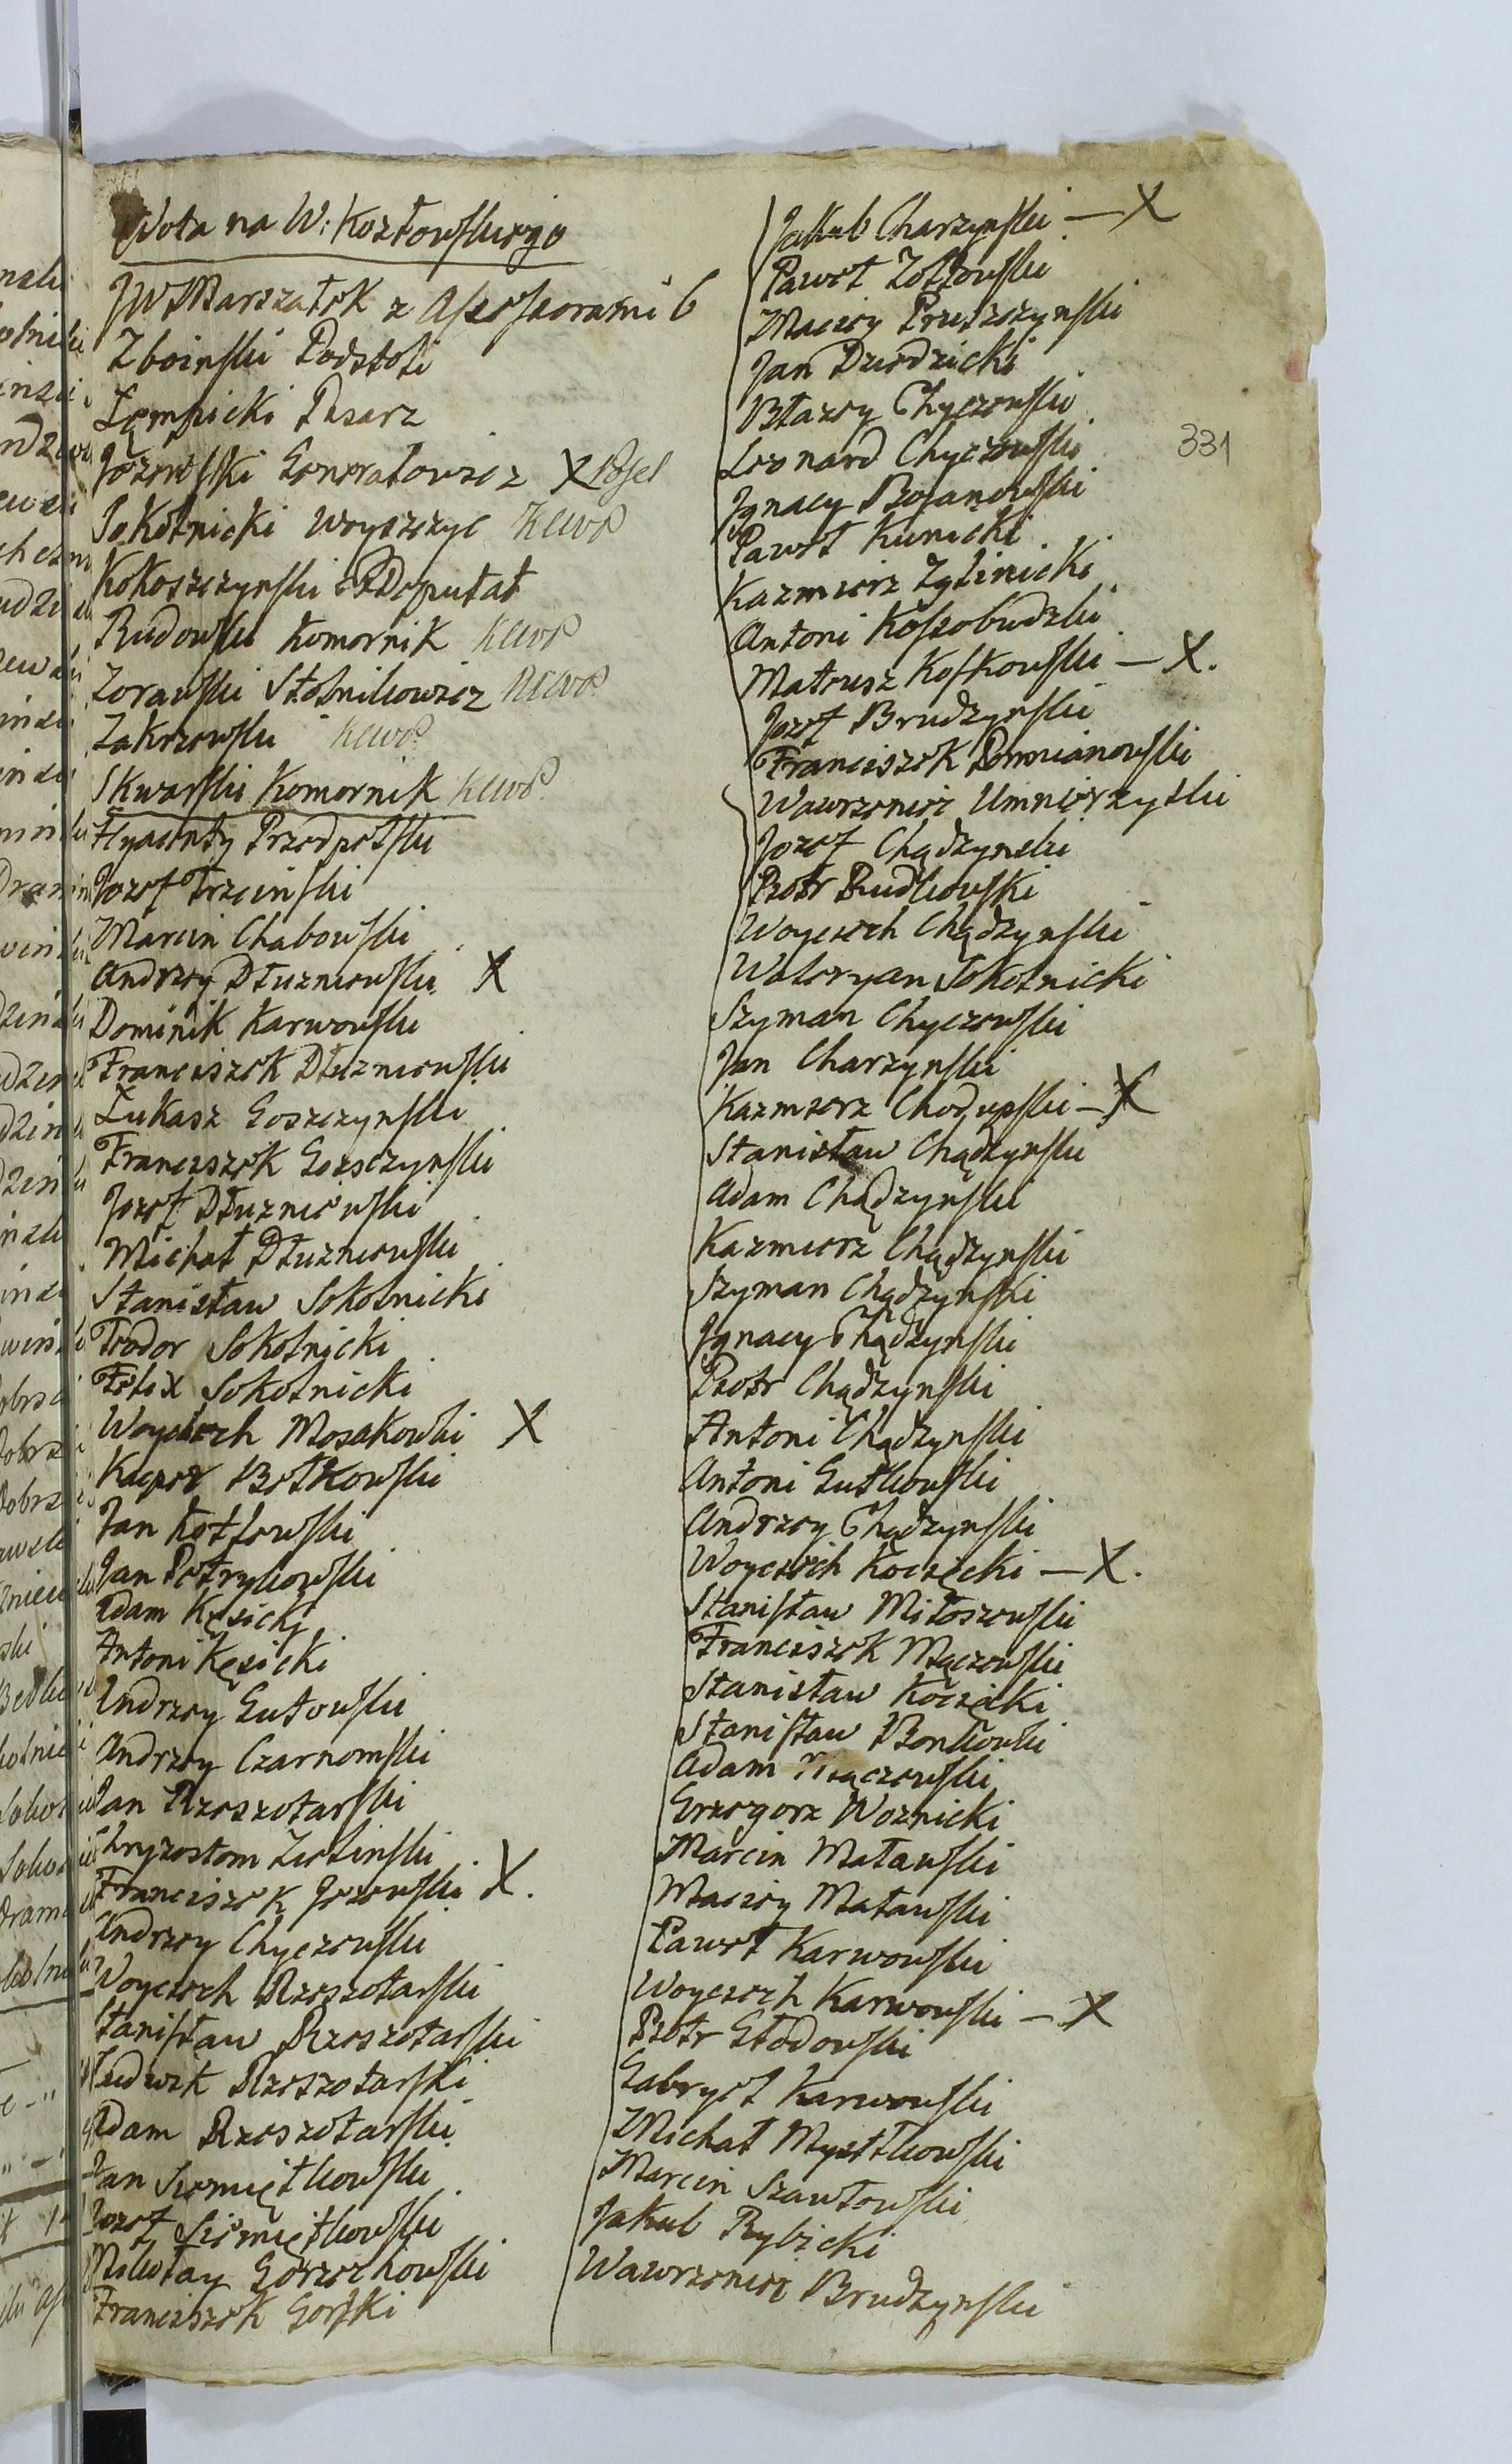 Wota na W: Kozłowskiego
JW Marszałek z Assessorami 6
Zboinski Podstoli
Łempicki Pisarz
Jozewski Generałowicz X
Sokolnicki Woyszczyc
Kokoszczynski Deputat
Rudowski Komornik
Zorawski Stolnikowicz
Zakrzewski
Skwarski Komornik
Hyacenty Przedpełski
Jozef Trzcinski
Marcin Chabowski
Andrzey Dłuzniewski X
Dominik Karwowski
Franciszek Dłuzniewski
Łukasz Goszczynski
Franciszek Gosczynski
Jozef Dłuzniewski
Michał Dłuzniewski
Stanisław Sokolnicki
Teodor Sokolnicki
Felix Sokolnicki
Woyciech Mosakowski X
Kacper Bełkowski
Jan Kozłowski
Jan Petrykowski
Adam Kęsicki
Antoni Kęsicki
Andrzey Gutowski
Andrzey Czarnomski
Jan Rzeszotarski
Chryzostom Zielinski
Franciszek Jezewski X.
Andrzey Chyczewski
Woyciech Rzeszotarski
Stanisław Rzeszotarski
Ludwik Rzeszotarski
Adam Rzeszotarski
Jan Siemiętkowski
Jozef Siemiętkowski
Mikołay Gorzechowski
Franciszek Gorski
Jakub Charzynski — X
Paweł Zołtowski
Maciey Pruszczynski
Jan Dziedzicki
Błazey Chyczewski
Leonard Chyczewski
331
Ignacy Bojanowski
Paweł Kunicki
Kazmierz Zglinicki
Antoni Kossobudzki
Mateusz Koskowski — X.
Jozef Brudzynski
Franciszek Domianowski
Wawrzeniec Umnierzyski
Jozef Chądzynski
Piotr Rudkowski
Woyciech Chądzynski
Waleryan Sokolnicki
Szyman Chyczewski
Jan Charzynski
Kazmierz Chodupski — X
Stanisław Chądzynski
Adam Chądzynski
Kazmierz Chądzynski
Szyman Chądzynski
Ignacy Chądzynski
Piotr Chądzynski
Antoni Chądzynski
Antoni Gutkowski
Andrzey Chądzynski
Woyciech Kocięcki — X.
Stanisław Miłoszewski
Franciszek Mączewski
Stanisław Kocięcki
Stanisław Bonkowski
Adam Mączewski
Grzegorz Woznicki
Marcin Maławski
Maciey Maławski
Paweł Karwowski
Woyciech Karwowski — X
Piotr Głodowski
Gabryel Karwowski
Michał Mystkowski
Marcin Szawłowski
Jakub Rybicki
Wawrzeniec Brudzynski